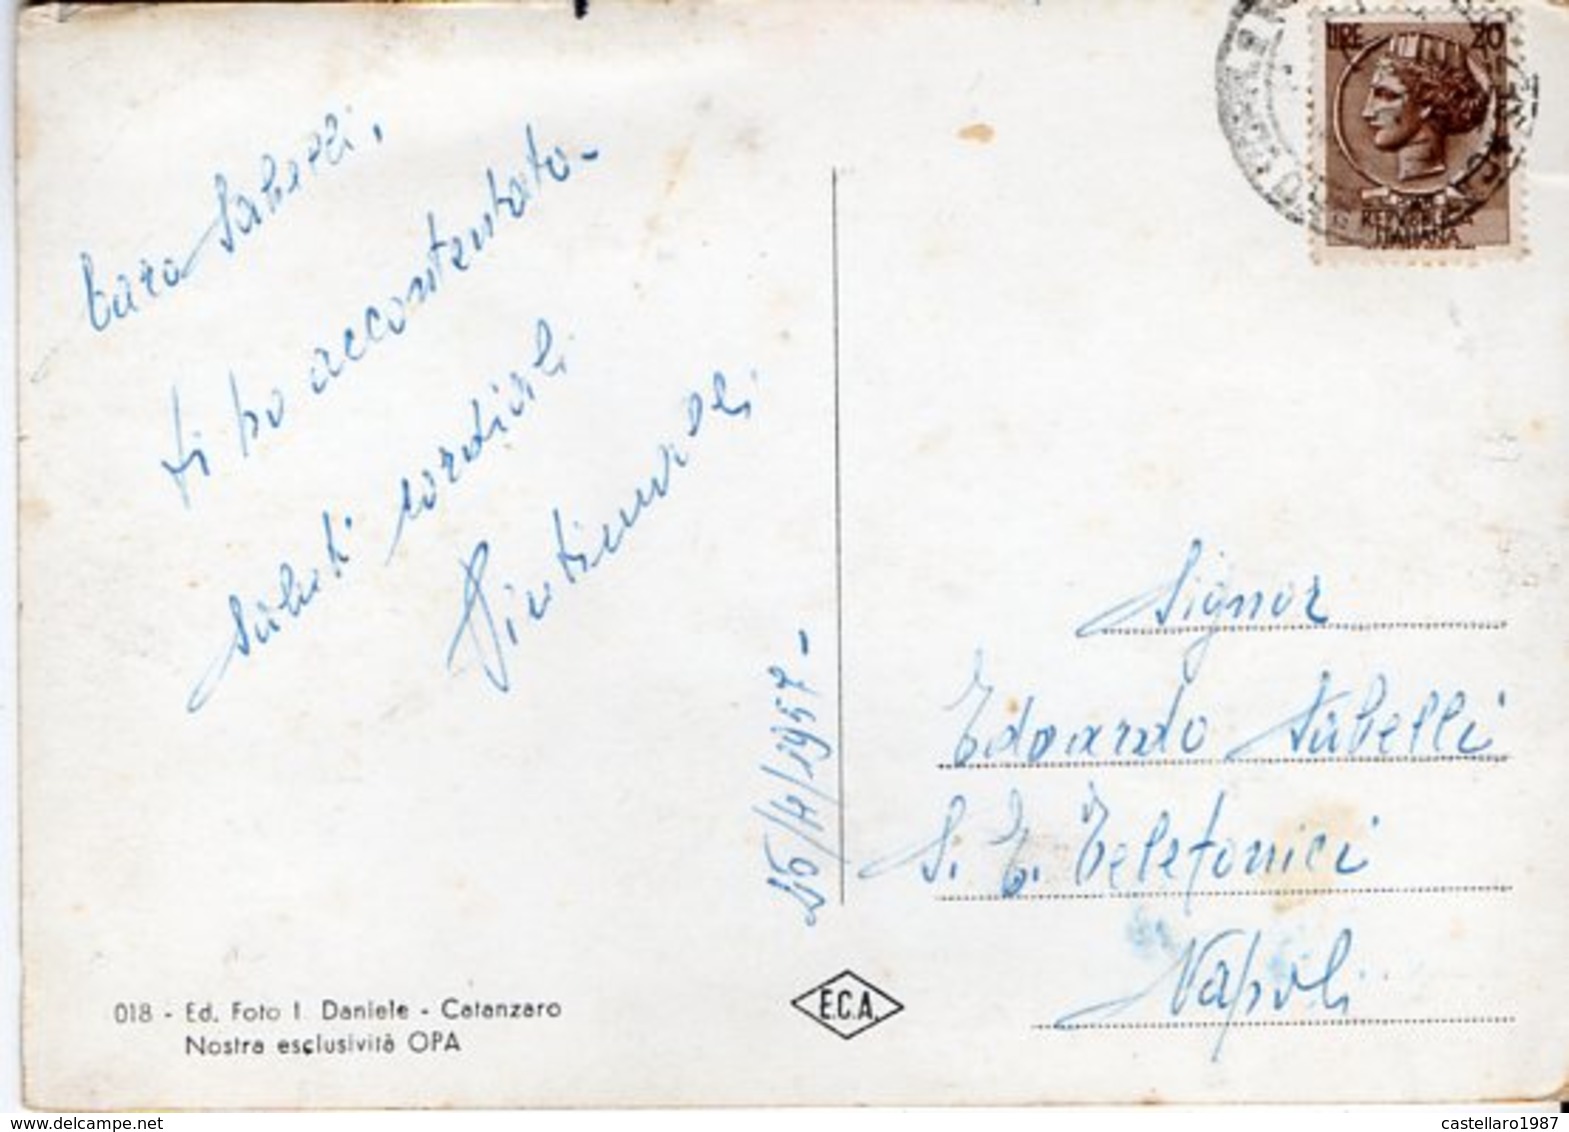 Caro Sabelli,
ti ho accontentato -
Saluti cordiali
25/4/1957 -
LIRE 20
REPVBBLICA
ITALIANA
Signor
Edoardo Sabelli
S. T. Telefonici
Napoli
018 - Ed. Foto I. Daniele - Catanzaro
Nostra esclusività OPA
E.C.A.
castellaro1987